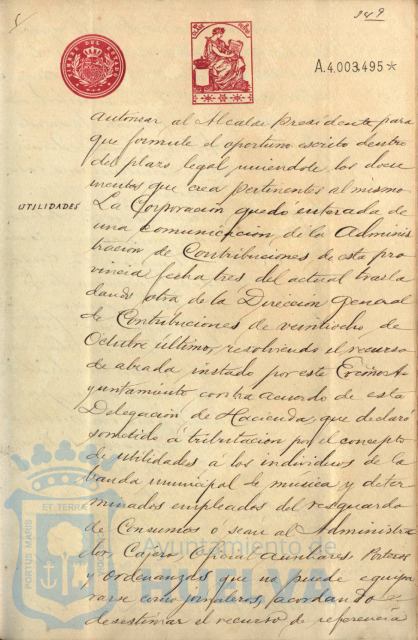 249
TIMBRE DEL ESTADO
A.4.003.495*
autorizar al Alcalde Presidente para
que formule el oportuno escrito dentro
del plazo legal uniendole los docu
mentos que crea pertinentes al mismo
UTILIDADES
La Corporación quedó enterada de
una comunicación de la Adminis
tración de Contribuciones de esta pro
vincia fecha tres del actual trasla
dando otra de la Dirección General
de Contribuciones de veintiocho de
Octubre último, resolviendo el recurso
de alzada instado por este Excmo A
yuntamiento contra acuerdo de esta
Delegación de Hacienda, que declaró
sometido á tributación por el concepto
de utilidades a los individuos de la
banda municipal de musica y deter
minados empleados del resguardo
de Consumos ó sean al Administra
dor, Cajero, Oficial Auxiliares, Porteros
y ordenanzas que no puede equipa
rarse como jornaleros, acordando
desestimar el recurso de referencia
PORTUS MARIS
ET TERRAE
Ayuntamiento de
HUELVA